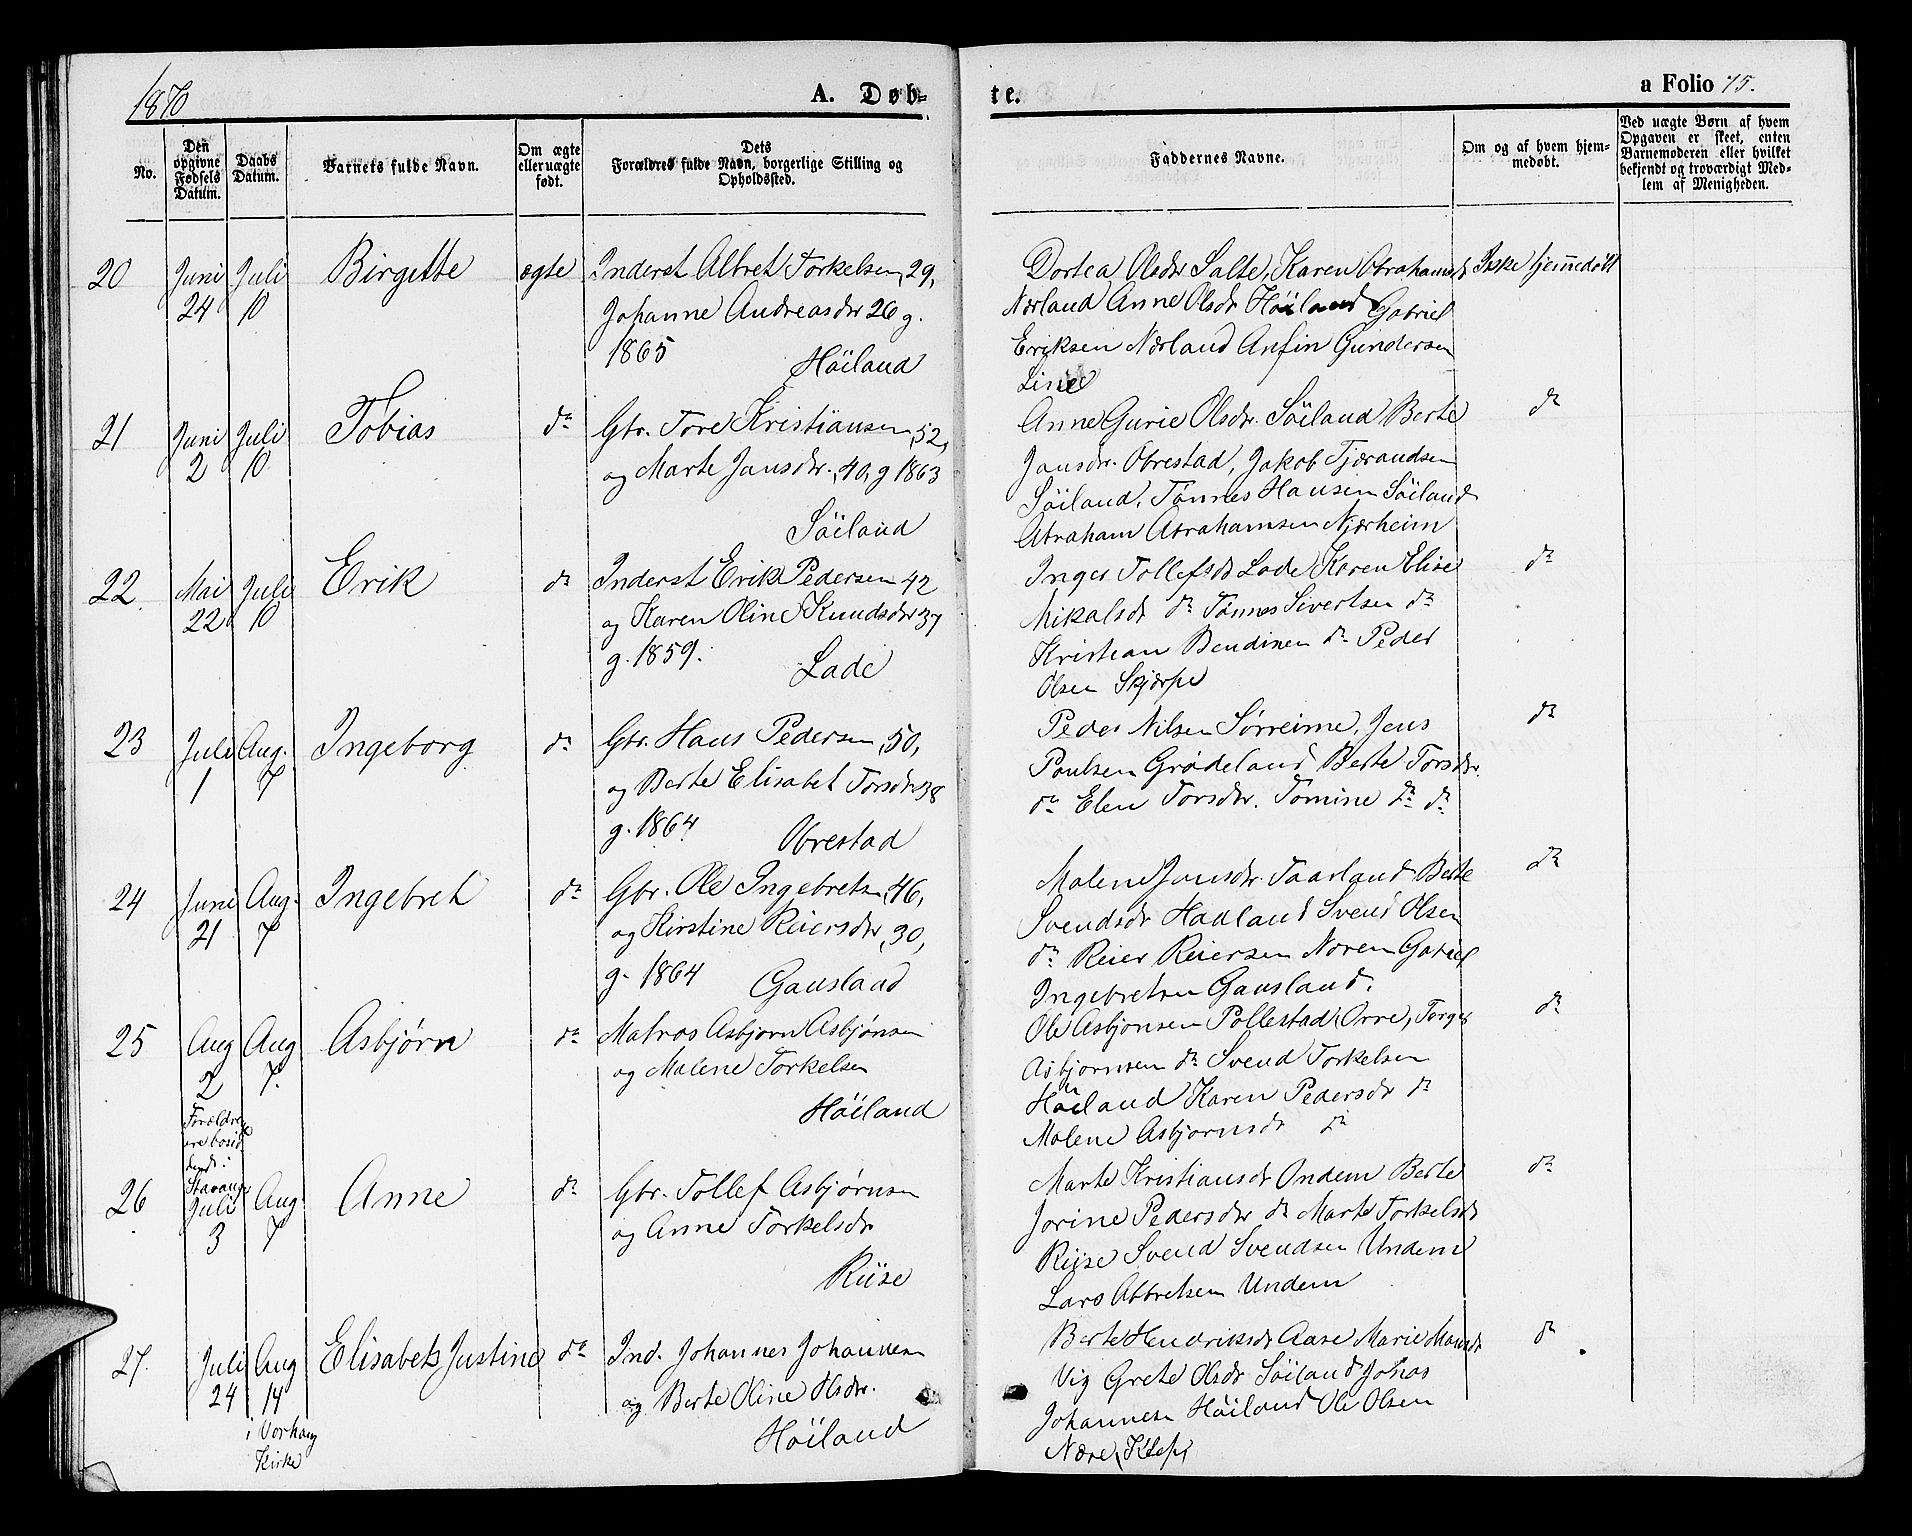 1870
A. Døb-
te.
a Folio 75.
No.
Den opgivne Fødsels Datum.
Daabs Datum.
Barnets fulde Navn.
Om ægte eller uægte født.
Dets Forældres fulde Navn, borgerlige Stilling og Opholdssted.
Faddernes Navne.
Om og af hvem hjemmedøbt.
Ved uægte Børn af hvem Opgaven er skeet, enten Barnemoderen eller hvilket bekjendt og troværdigt Medlem af Menigheden.
20 Juni 24 Juli 10 Birgitte ægte
Inderst Albret Torkelsen, 29,
Johanne Andreasdr 26 g.
1865 Höiland
Dortea Olsdr Salte, Karen Abrahamsdr
Nærland Anne Olsdr Höiland Gabriel
Eriksen Nærland Anfin Gundersen
Line
Ikke hjemmedøbt
21 Juni 2 Juli 10 Tobias do
Gbr. Tore Kristiansen, 52,
og Marte Jansdr., 40, g 1863
Söiland
Anne Gurie Olsdr. Söiland Berte
Jansdr. Obrestad, Jakob Tjerandsen
Söiland, Tønnes Hansen Söiland
Abraham Abrahamsen Njærheim
do
22. Mai 22 Juli 10 Erik do
Inderst Erik Pedersen 42
og Karen Oline Knudsdr 37
g. 1859. Lade
Inger Tollefsdr Lade Karen Elise
Mikalsdr do Tønnes Sivertsen do
Kristian Bendixen do Peder
Olsen Skjærpe
do
23 Juli 1 Aug. 7 Ingeborg do
Gbr. Hans Pedersen, 50,
og Berte Elisabet Torsdr 38
g. 1864 Obrestad
Peder Nilsen Sørreime, Jens
Poulsen Grødeland Berte Torsdr.
do Elen Torsdr. Tomine do do
do
24 Juni 21 Aug. 7 Ingebret do
Gbr. Ole Ingebretsn, 46,
og Kirstine Reiersdr, 30,
g. 1864 Gausland
Malene Jonsdr. Taarland Berte
Svendsdr Hadland Svend Olsen
do Reier Reiersen Noren Gabriel
Ingebretsen Gausland.
do
25 Aug 2 Aug 7. Asbjørn do
Forældrene
ere bosid-
dende i
Stavange
Matros Asbjørn Asbjønsen
og Malene Torkelsen
Höiland
Ole Asbjonsen Pollestad, Orre, Torger
Asbjornsen do Svend Torkelsen
Höiland Karen Pedersdr do
Malene Asbjornsdr do
do
26 Juli 3 Aug. 7 Anne do
Gbr. Tollef Asbjørnsen
og Anne Torkelsdr
Riise
Marte Kristiansdr Ondem Berte
Jorine Pedersdr do Marte Torkelsdr
Riise Svend Svendsen Undem
Lars Albretsen Undem
do
27. Juli 24 Aug 14 Elisabet Justine do
i Varhaug
Kirke
Ind. Johannes Johannesn
og Berte Oline Olsdr.
Höiland
Berte Hendriksdr Aase Marie Monsdr
Vig Grete Olsdr Söiland Jonas
Johannesn Höiland Ole Olsen
Nære, Klep,
do